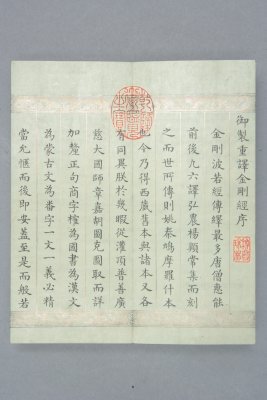 御製重譯金剛經序
金剛波若經傳繹最多唐僧慈能
前後九六譯弘農楊顒常集而刻
之而世所傳則姚秦鳩摩羅什本
也今乃得西藏舊本與諸本又各
有同異朕於幾暇從灌頂普善廣
慈大國師章嘉胡圖克圖取而詳
加釐正句商字榷為國書為漢文
為蒙古文為番字一文一義必精
當允愜而後即安蓋至是而般若